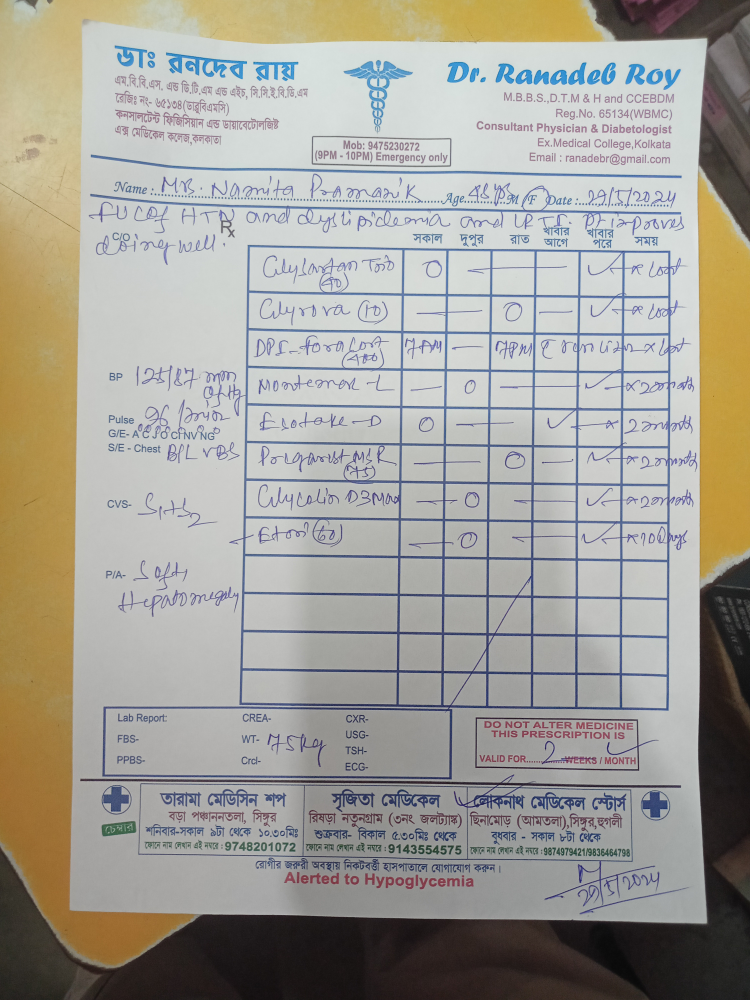 ডাঃ রনদেব রায়
এম.বি.বি.এস. এন্ড ডি.টি.এম এন্ড এইচ, সি.সি.ই.বি.ডি.এম
রেজিঃ নং- ৬৫১৩৪(ডাব্লুবিএমসি)
কনসালটেন্ট ফিজিসিয়ান এন্ড ডায়াবেটোলজিষ্ট
এক্স মেডিকেল কলেজ,কলকাতা
Mob: 9475230272
(9PM - 10PM) Emergency only
Dr. Ranadeb Roy
M.B.B.S.,D.T.M & H and CCEBDM
Reg.No. 65134(WBMC)
Consultant Physician & Diabetologist
Ex.Medical College,Kolkata
Email : ranadebr@gmail.com
Name : Mrs. Namita Pramanik Age M (F) Date : 29/5/2024
FUC of HTN and dyslipidemia and URTI. Pt improves
C/O doing well. Rx
সকাল দুপুর রাত খাবার আগে খাবার পরে সময়
Glysartan Trio (40) O — ✓ x cont
Glyrova (10) — O — ✓ x cont
DPI - Foracort (400) 7AM — 7PM x cont
BP 125/87 mm of Hg
Montemac-L — O — ✓ x 2 month
Pulse 96 /min
Esotake-D O — ✓ — x 2 month
G/E- A C J O Cl NV NG
S/E - Chest BPL VBS
(75) — O — ✓ x 2 month
D3 Max — O — ✓ x 2 month
CVS- S1+S2
(60) — O — ✓ x 10 Days
P/A- Soft,
Hepatomegaly
Lab Report: CREA- CXR-
FBS- WT- 75 kg USG-
TSH-
PPBS- Crcl- ECG-
DO NOT ALTER MEDICINE
THIS PRESCRIPTION IS
VALID FOR......2......WEEKS / MONTH
তারামা মেডিসিন শপ
বড়া পঞ্চাননতলা, সিঙ্গুর
শনিবার-সকাল ৯টা থেকে ১০.৩০মিঃ
ফোনে নাম লেখান এই নম্বরে : 9748201072
চেম্বার
সৃজিতা মেডিকেল
রিষড়া নতুনগ্রাম (৩নং জলট্যাঙ্ক)
শুক্রবার- বিকাল ৫.৩০মিঃ থেকে
ফোনে নাম লেখান এই নম্বরে : 9143554575
লোকনাথ মেডিকেল স্টোর্স
ছিনামোড় (আমতলা),সিঙ্গুর,হুগলী
বুধবার - সকাল ৮টা থেকে
ফোনে নাম লেখান এই নম্বরে : 9874979421/9836464798
রোগীর জরুরী অবস্থায় নিকটবর্ত্তী হাসপাতালে যোগাযোগ করুন।
Alerted to Hypoglycemia
29/5/2024